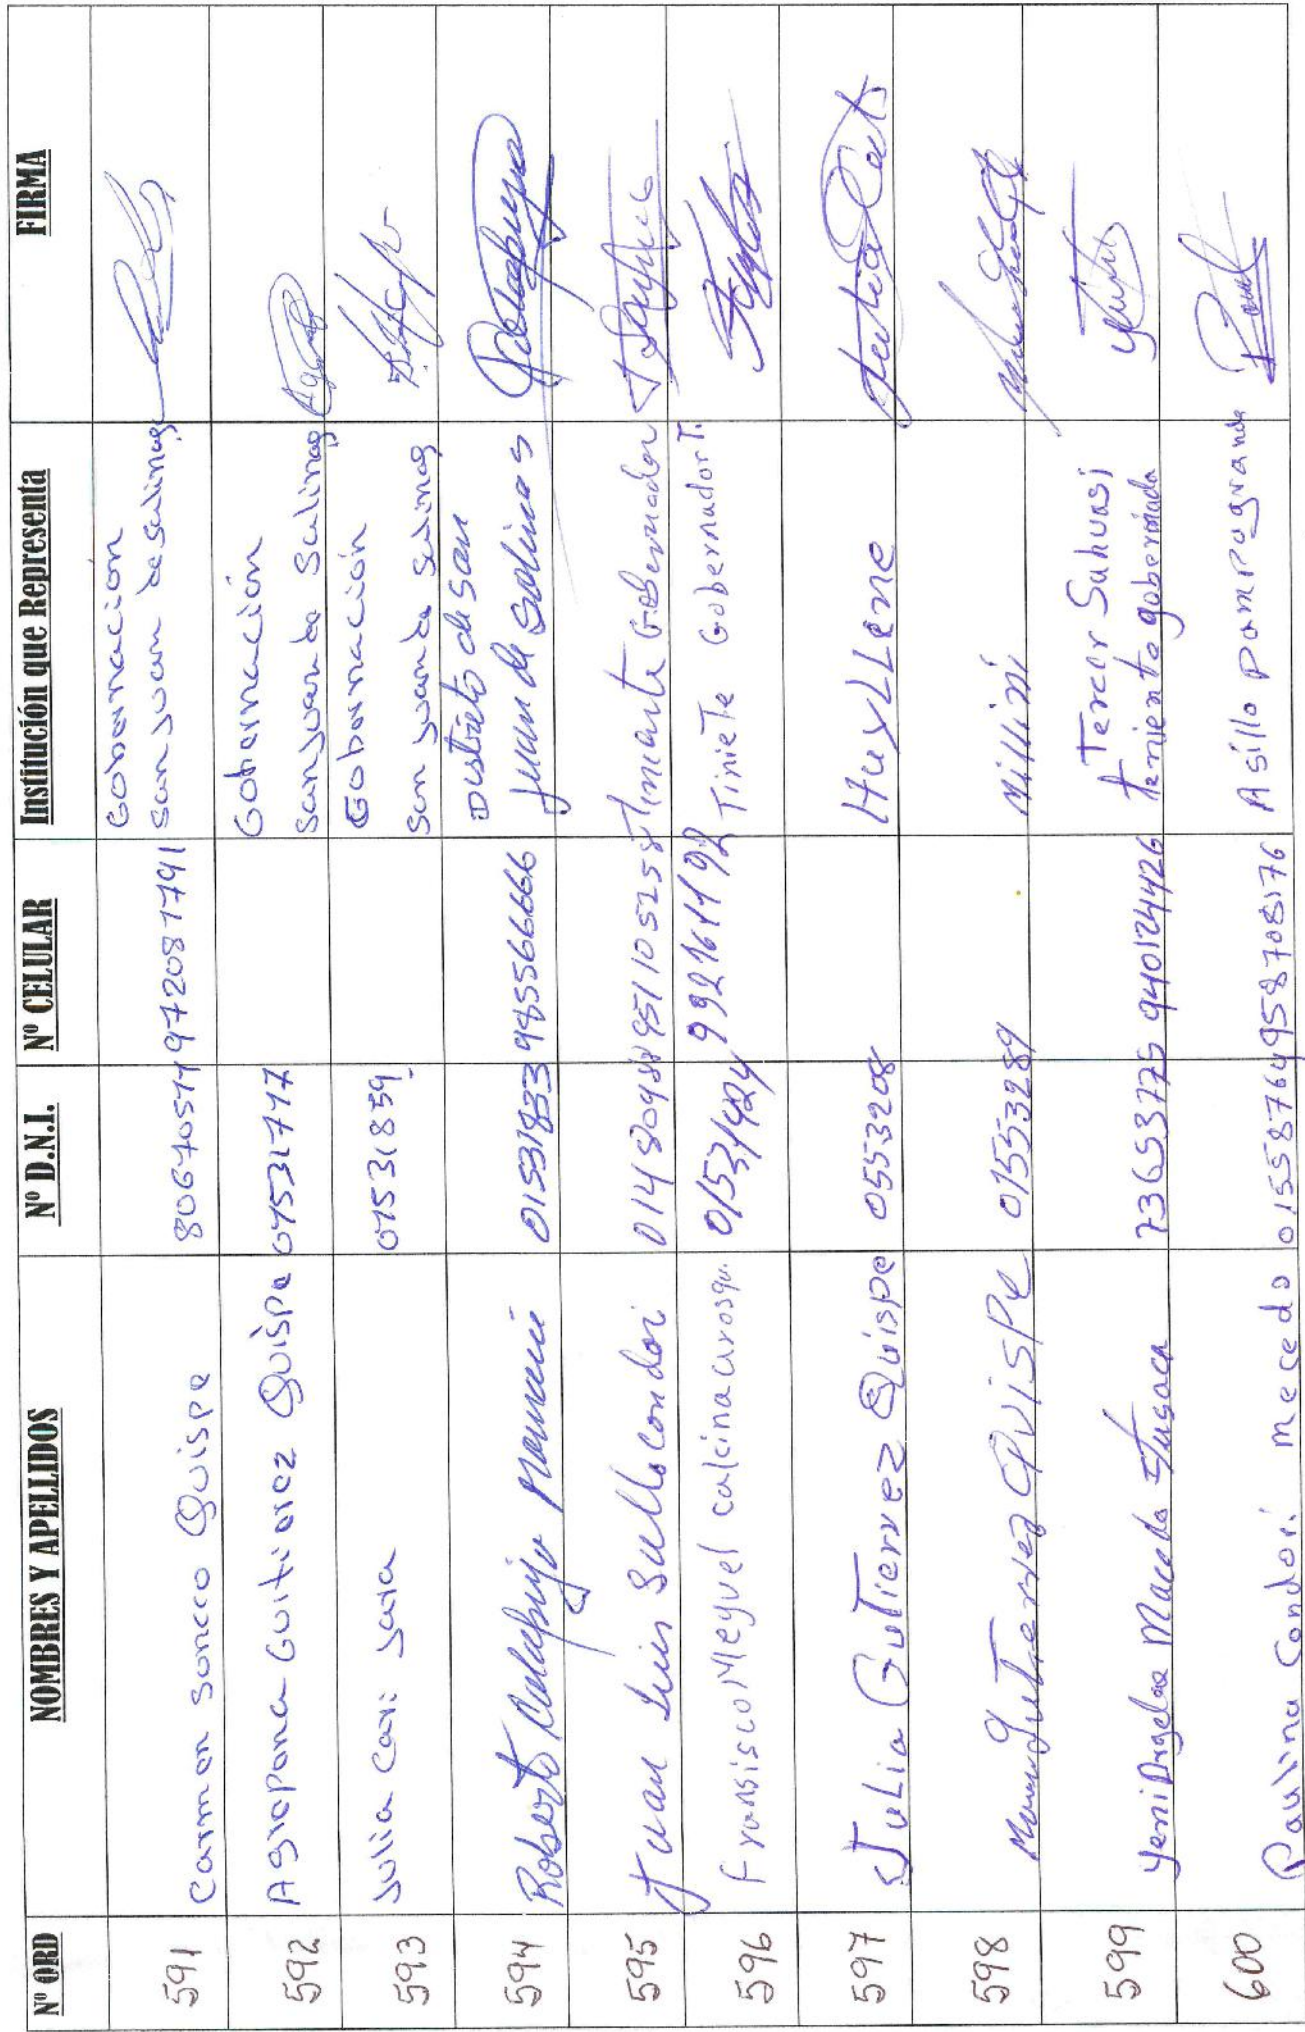 Nº ORD NOMBRES Y APELLIDOS Nº D.N.I. Nº CELULAR Institución que Representa FIRMA
591 Carmen Soncco Quispe 80670571 972087791 Gobernación
San Juan de Salinas
592 Agrepena Gutierez Quispe 01531717 Gobernación
San Juan de Salinas
593 Julia Cari Jara 01531859 Gobernación
San Juan de Salinas
594 Roberto Mamani 01531833 985566666 Distrito de San
Juan de Salinas
595 Juan Luis Sullo Condori 01480988 951105258 Tineante Gobernador
596 Fransisco Meyuel calcina 01531424 992161192 Tiniete Gobernador T.
597 Julia GuTierrez Quispe 0553208 HuyLLene
598 GuTierrez QUISPE 01553289
599 Yeni Macedo 73653775 940124426 Tercer Sahuasi
teniente
600 Paulina Condori mecedo 01558764 958708176 Asillo pampa grande